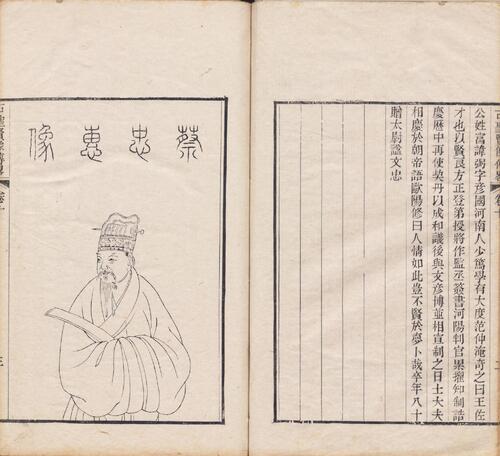 公姓富諱弼字彥國河南人少篤學有大度范仲淹奇之曰王佐
才也以賢良方正登第授將作監丞簽書河陽判官累擢知制誥
慶曆中再使契丹以成和議後與文彥博並相宣制之日士大夫
相慶於朝帝語歐陽修曰人情如此豈不賢於夢卜哉卒年八十
贈太尉諡文忠
蔡忠惠像